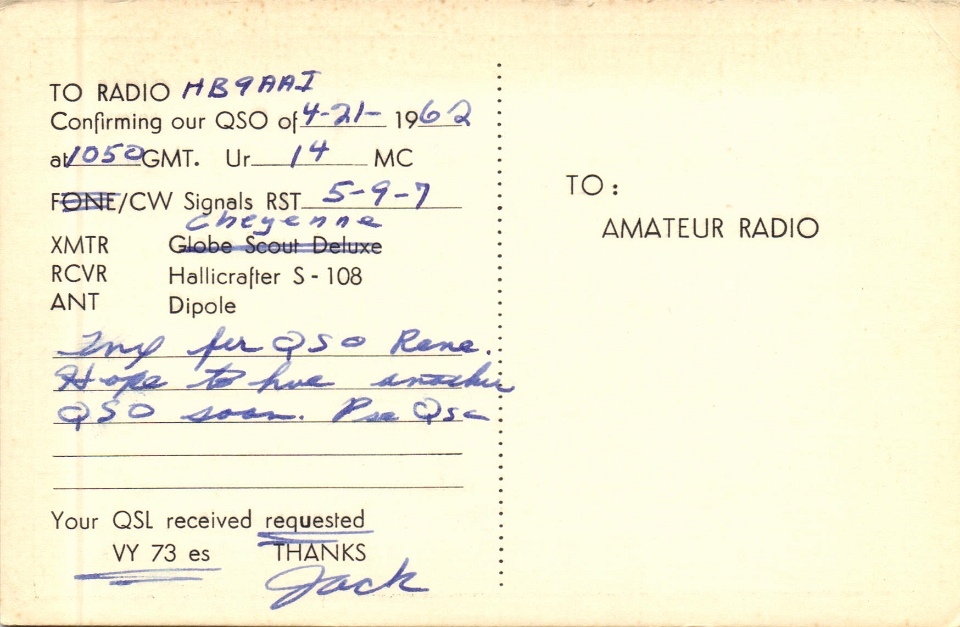 TO RADIO HB9AAI
Confirming our QSO of 4-21- 1962
at 1050 GMT. Ur 14 MC
FONE/CW Signals RST 5-9-7
Cheyenne
XMTR Globe Scout Deluxe
RCVR Hallicrafter S-108
ANT Dipole
Tnx fer QSO Rene.
Hope to hve another
QSO soon. Pse QSL
Your QSL received requested
VY 73 es THANKS
Jack
TO:
AMATEUR RADIO